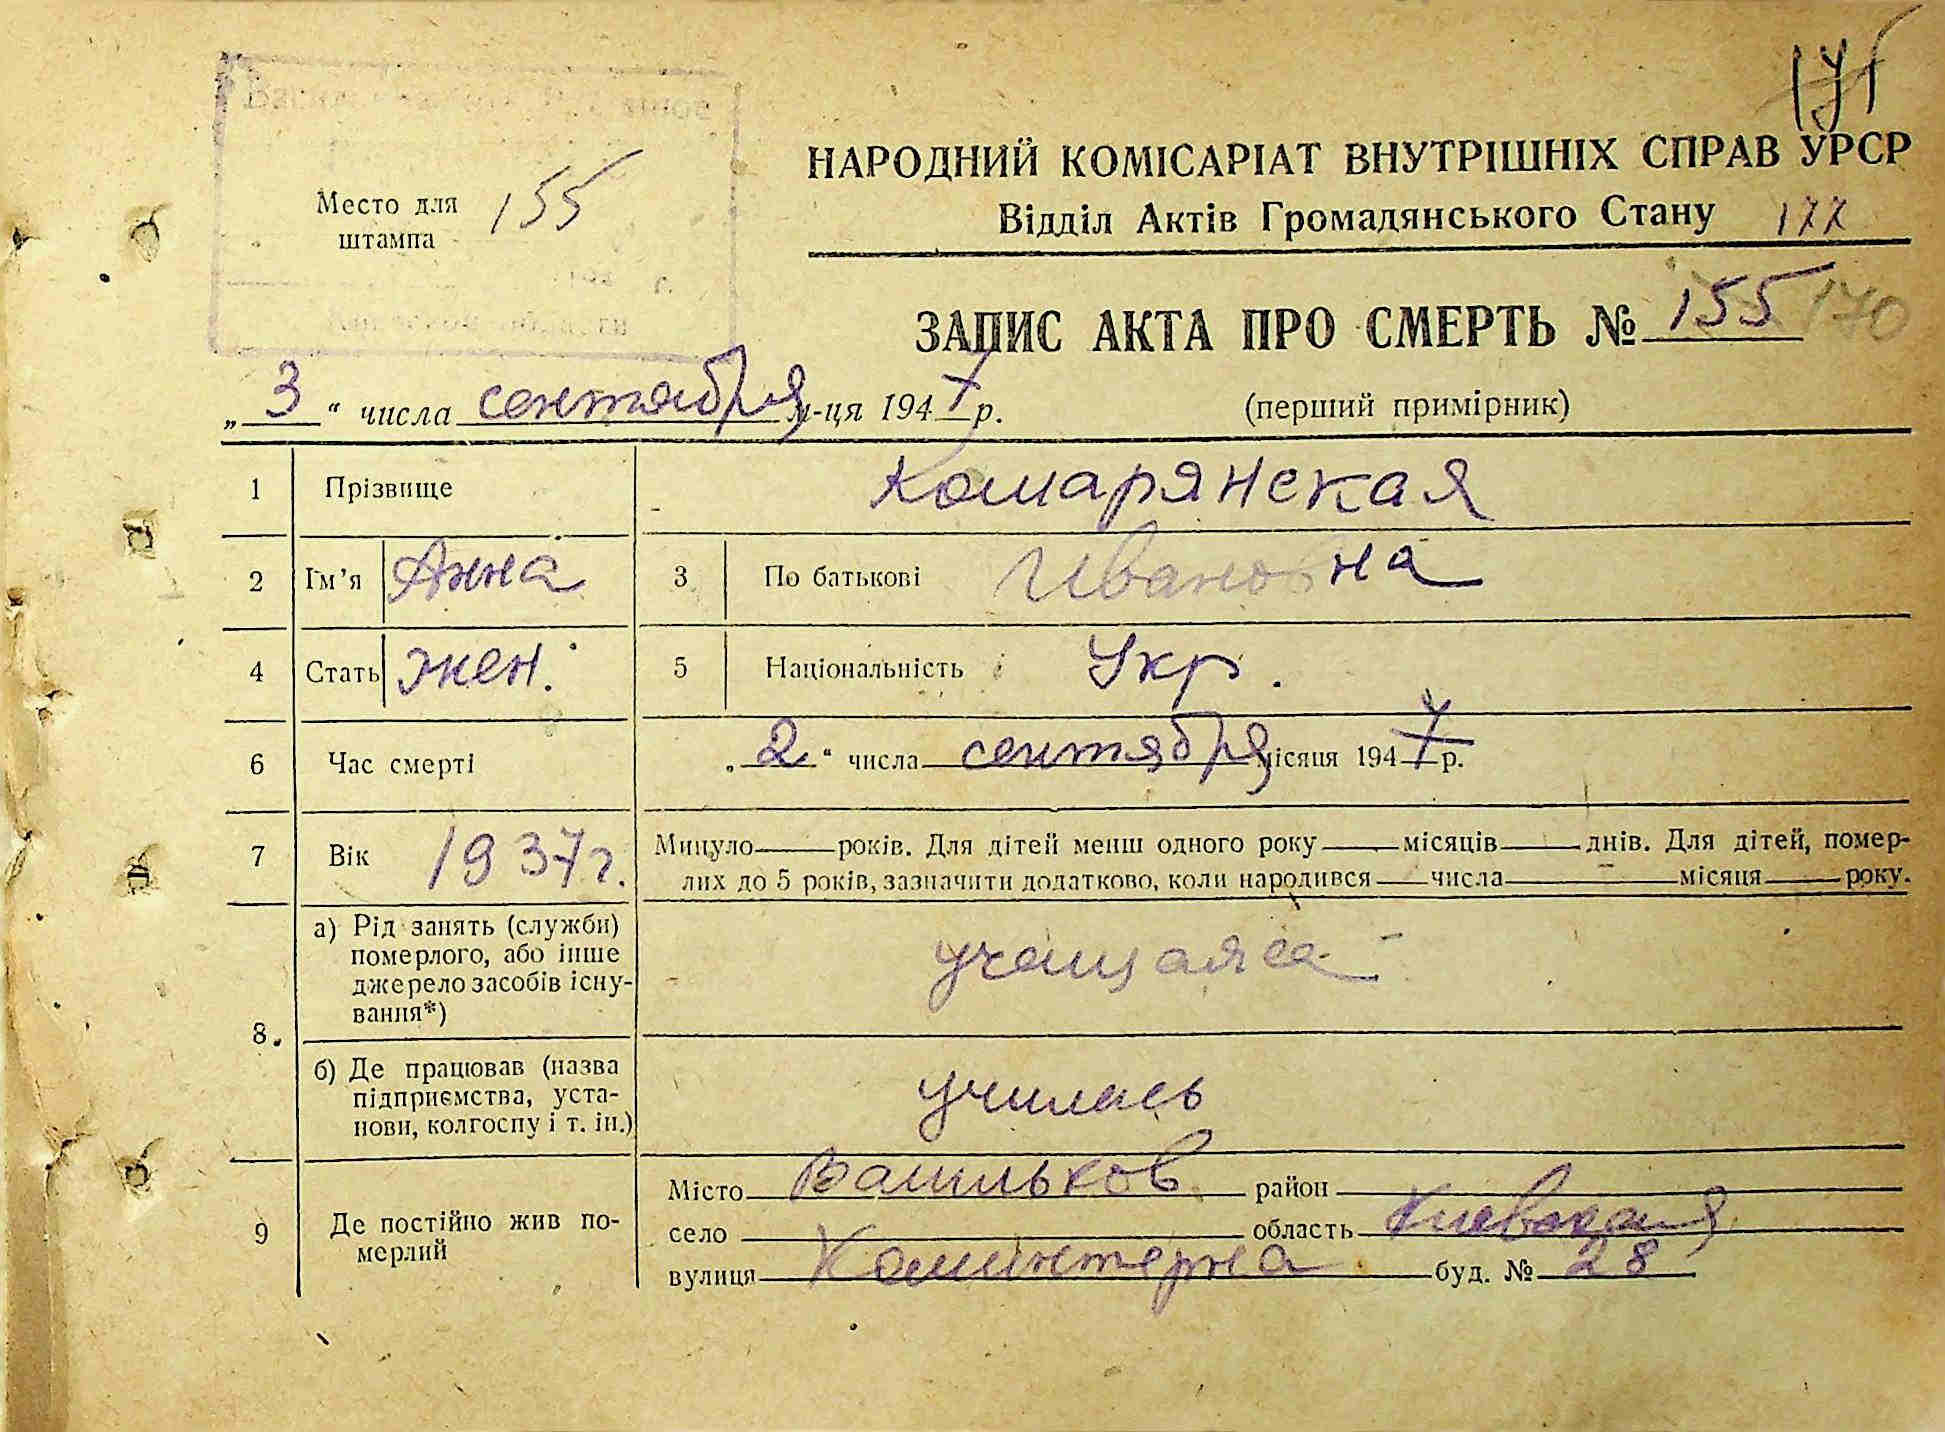 НАРОДНИЙ КОМІСАРІАТ ВНУТРІШНІХ СПРАВ УРСР
Відділ Актів Громадянського Стану 177
Место для штампа 155
ЗАПИС АКТА ПРО СМЕРТЬ № 155 170
„3“ числа сентября м-ця 1947 р. (перший примірник)
1 Прізвище Комарянская
2 Ім’я Анна 3 По батькові Ивановна
4 Стать жен. 5 Національність Укр.
6 Час смерті „2“ числа сентября місяця 1947 р.
7 Вік 1937 г. Минуло років. Для дітей менш одного року місяців днів. Для дітей, помер-
лих до 5 років, зазначити додатково, коли народився числа місяця року.
8. а) Рід занять (служби)
померлого, або інше
джерело засобів існу-
вання*)
учащаяся
б) Де працював (назва
підприємства, уста-
нови, колгоспу і т. ін.)
училась
9 Де постійно жив по-
мерлий
Місто Васильков район
село область Киевская
вулиця Коминтерна буд. № 28